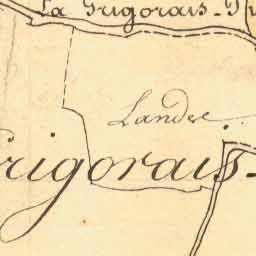 La Grigorais
Landes.
rigorais